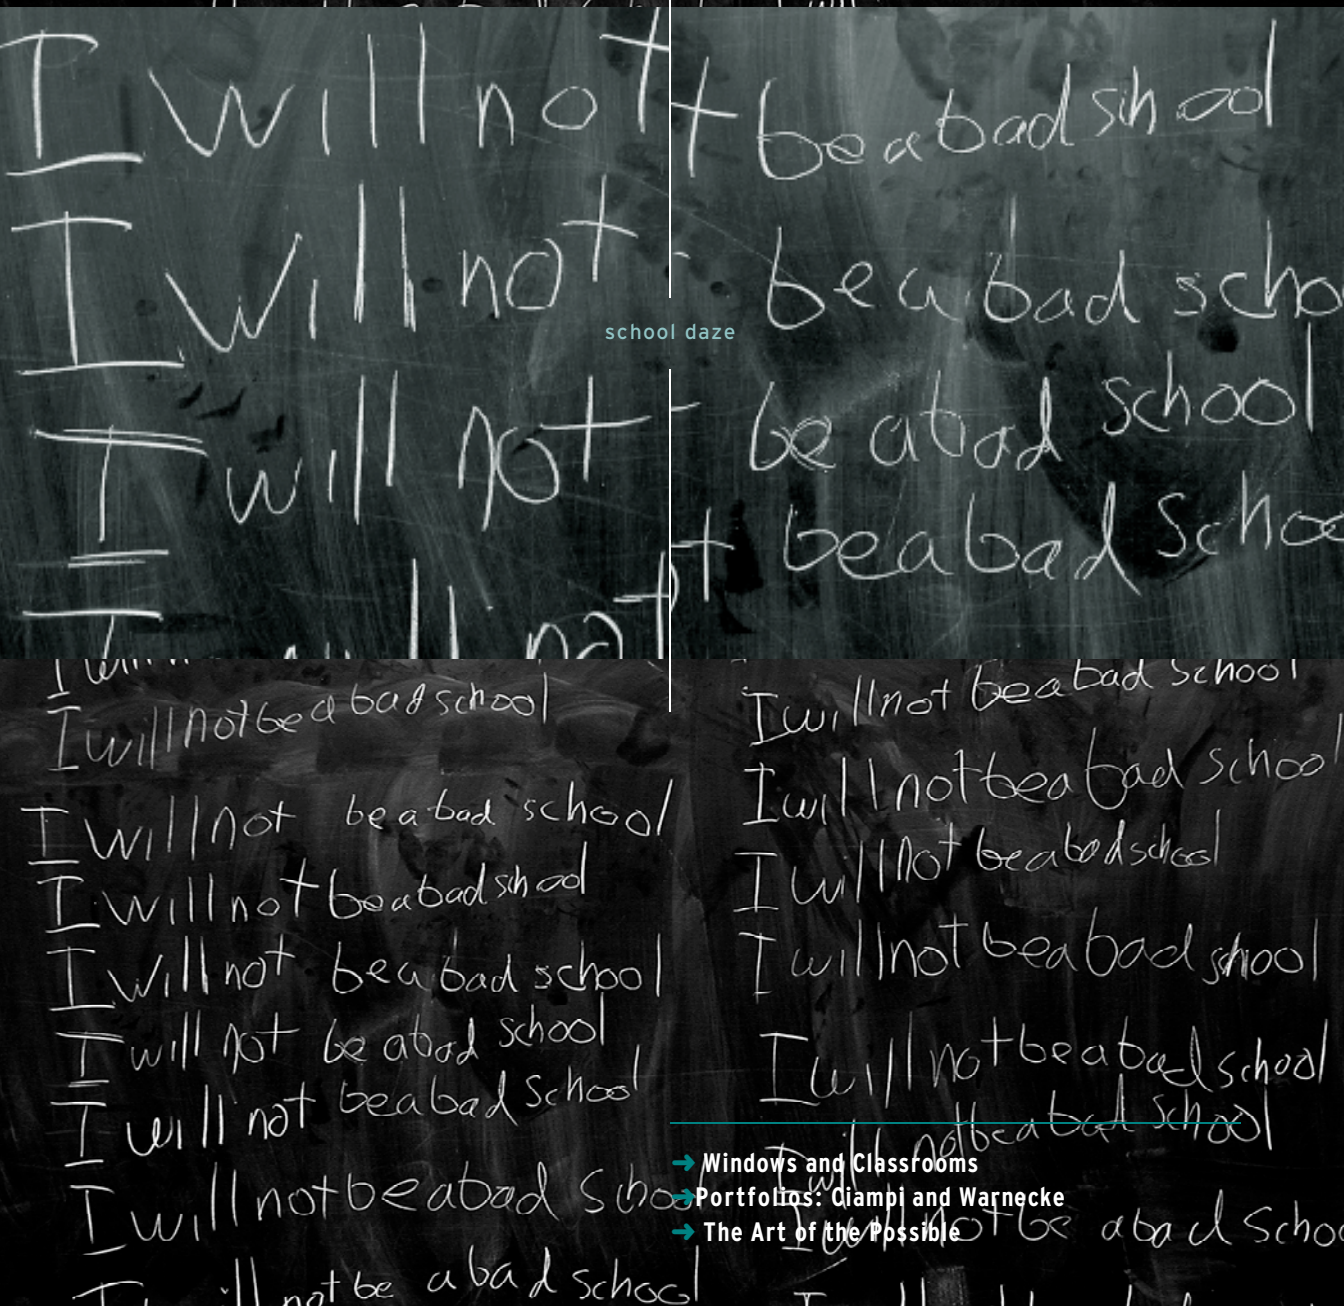 I will not
t be a bad school
I will not
be a bad scho
school daze
I will not
be a bad school
t be a bad schoo
I will not
I will not be a bad school
I will not be a bad school
I will not be a bad school
I will not be a bad school
I will not be a bad school
I will not be a bad school
I will not be a bad school
I will not be a bad schoo
I will not be a bad school
I will not be a bad school
I will not be a bad school
I will not be a bad school
I will not be a bad school
I will not be a bad school
I will not be a bad school
I will not be a bad schoo
➔ Windows and Classrooms
➔ Portfolios: Ciampi and Warnecke
➔ The Art of the Possible